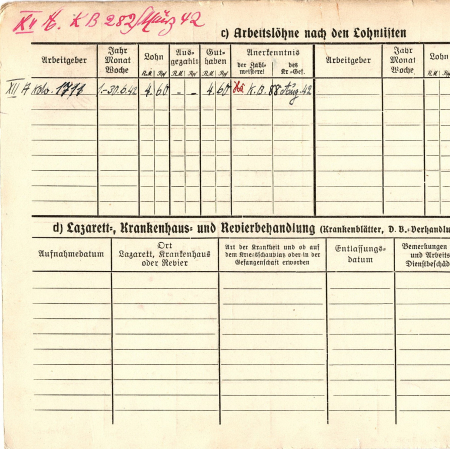 K B 282 März 42
c) Arbeitslöhne nach den Lohnlisten
Arbeitgeber Jahr Monat Woche Lohn Aus-gezahlt Gut-haben Anerkenntnis Arbeitgeber Jahr Monat Woche Lohn
R.M. Rpf R.M. Rpf R.M. Rpf der Zahl-meisterei des Kr.-Gef. R.M. Rpf
XII Kdo. 1716 1.-30.6.42 4.60 - - 4.60 K.B. 88 42
d) Lazarett-, Krankenhaus- und Revierbehandlung (Krankenblätter, D. B.-Verhandlu
Aufnahmedatum Ort Lazarett, Krankenhaus oder Revier Art der Krankheit und ob auf dem Kriegsschauplatz oder in der Gefangenschaft erworben Entlassungs-datum Bemerkungen und Arbeits Dienstbeschäd